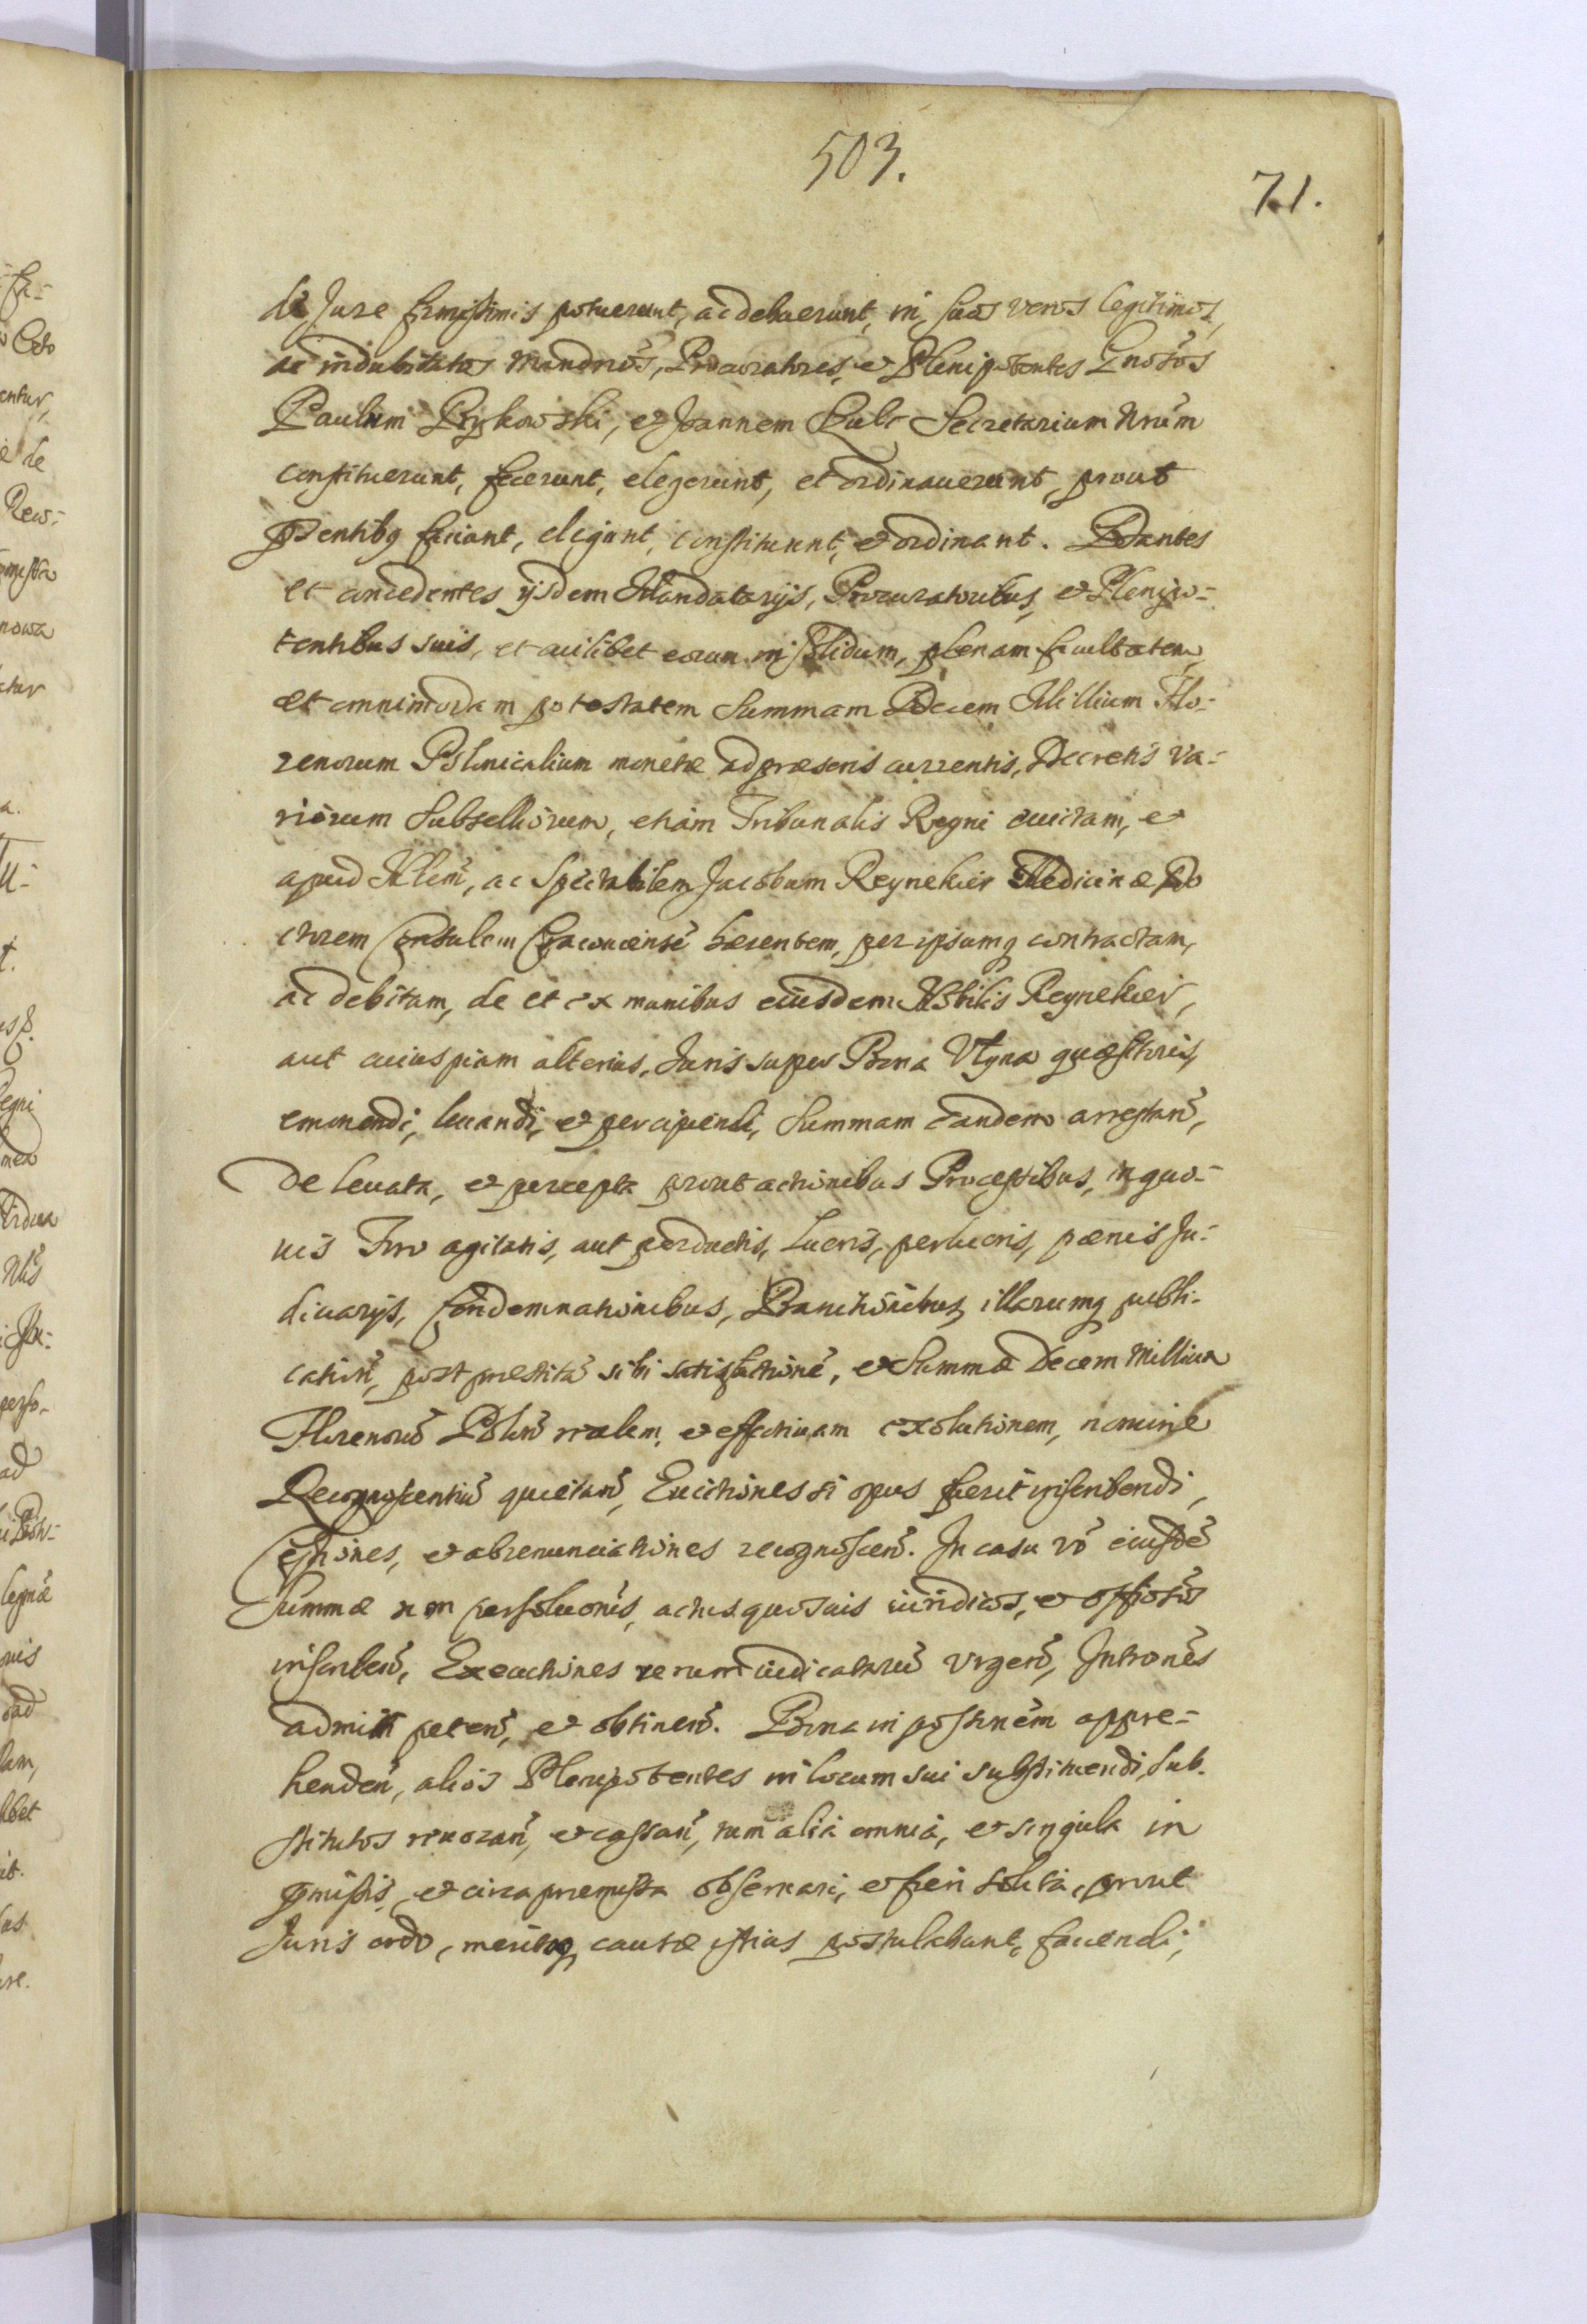 503.
71.
de Jure firmissimis potuerunt, ac debuerunt, in suos veros legitimos,
ac indubitatos Mandrios, Procuratores, et Plenipotentes Gnosos
Paulum Rykowski, et Joannem Kulc Secretarium Nrum
constituerunt, fecerunt, elegerunt, et ordinauerunt, prout
pntibq faciunt, eligunt, constituunt, et ordinant. Dantes
et concedentes ijsdem Mandatarijs, Procuratoribus, et Plenipo-
tentibus suis, et cuilibet eorum in solidum, plenam facultatem,
et omnimodam potestatem Summam Decem Millium Flo-
renorum Polonicalium monetæ ad præsens currentis, Decretis va-
riorum Subselliorum, etiam Tribunalis Regni euictam, et
apud Nblem, ac Spectabilem Jacobum Reynekier Medicinæ Do
ctorem Consulem Cracouiensē hærentem, per ipsumq contractam,
ac debitam, de et ex manibus eiusdem Nobilis Reynekier,
aut cuiuspiam alterius, Juris super Bona Vtyna quæsitoris,
emonendi, leuandi, et percipiendi, Summam eandem arrestan,
De leuata, et percepta prout actionibus Processibus, in quo-
uis Foro agitatis, aut perductis, Lucris, perlucris, pænis Ju-
diciarijs, Condemnationibus, Bannitionibus, illarumq publi-
cation, post præstitā sibi satisfactionē, et Summæ Decem Millium
Florenorū Polon realem, et effectiuam exolutionem, nomine
Recognoscentiū quietan, Euictiones si opus fuerit inscribendi,
Cessiones, et abrenunciationes recognoscen. In casu vō eiusdē
Summæ non persoluonis, actus quosuis iuridicos, et offiosos
inscriben, Executiones rerum iudicatarū vrgen, Intrones
admitti peten, et obtinen. Bona in possnem appre-
henden, alios Plenipotentes in locum sui substituendi, sub-
stitutos reuocan, et cassan, tum alia omnia, et singula in
pmissis, et circa præmissa obseruari, et fieri solita, prout
Juris ordo, meritaq causæ istius postulabunt, faciendi,